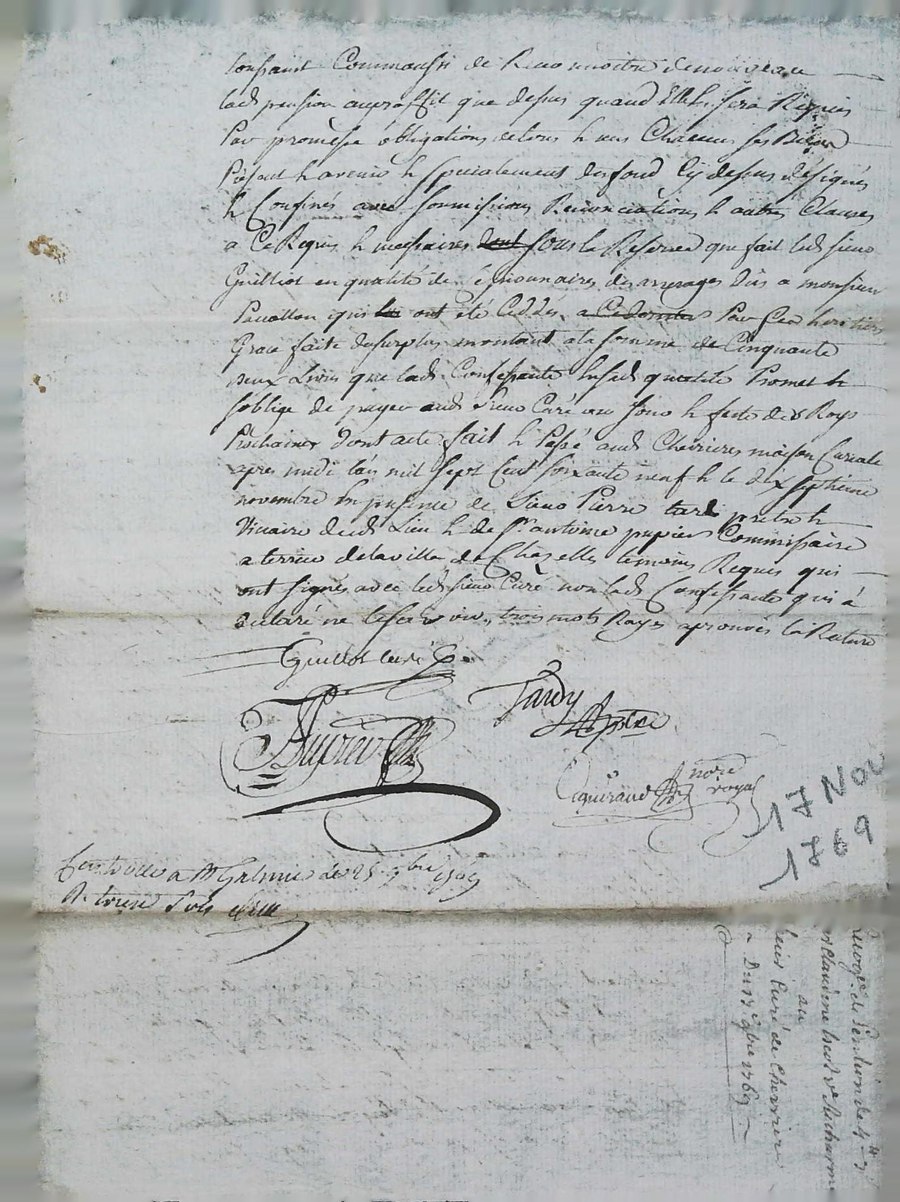 Commansé de Reconnoitre de nouveau
lad pension au proffit que dessus quand Elle sera Requis
Par promesse obligations de tous & uns Chacuns ses Biens
Présent & avenir & specialement des fond Cy dessus désignés
& Confinés avec soumissions Renonciations & autres Clauses
a Ce Requis & nécessaires dont sous la Reserve que fait led sieur
Guilliot en qualité de des arrerages dûs a monsieur
qui ont été Ceddés a Ce dernier Par ses heritiers
Grace faite du surplus montant a la somme de Cinquante
deux Livres que lad Confessante susd qualité Promet &
s'oblige de payer aud sieur Curé au Jour & feste des Roys
Prochaines dont acte fait & Passé aud Chevrieres maison Curiale
apres midi l'an mil sept Cent soixante neuf & le dix septieme
novembre En presence de Sieur Pierre tardi pretre &
Vicaire dud Lieu & de Sr antoine pupier Commissaire
a terrier de la ville de Chazelles temoins Requis qui
ont signés avec led sieur Curé non lad Confessante qui a
declaré ne le scavoir, trois mots Rayes aprouvés la Rature
Guilliot curé
Tardy
ptre
Pupier
nore
royal
17 Nov
1769
a St Galmie le 25 9bre 1769
R. treize sols
de Pension de 4tt
au
sieur Curé de Chevrier
Du 17e 9bre 1769